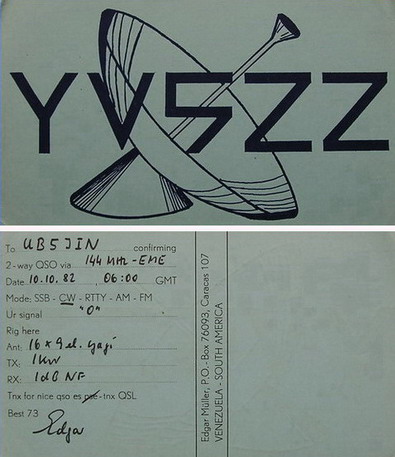 YV5ZZ
To UB5JIN confirming
2-way QSO via 144 MHz - EME
Date 10.10.82, 06:00 GMT
Mode: SSB - CW - RTTY - AM - FM
Ur signal "O"
Rig here
Ant: 16 x 9 el. yagi
TX: 1kW
RX: 1dB NF
Tnx for nice qso es pse-tnx QSL
Best 73
Edgar
Edgar Müller, P.O.-Box 76093, Caracas 107
VENEZUELA - SOUTH AMERICA